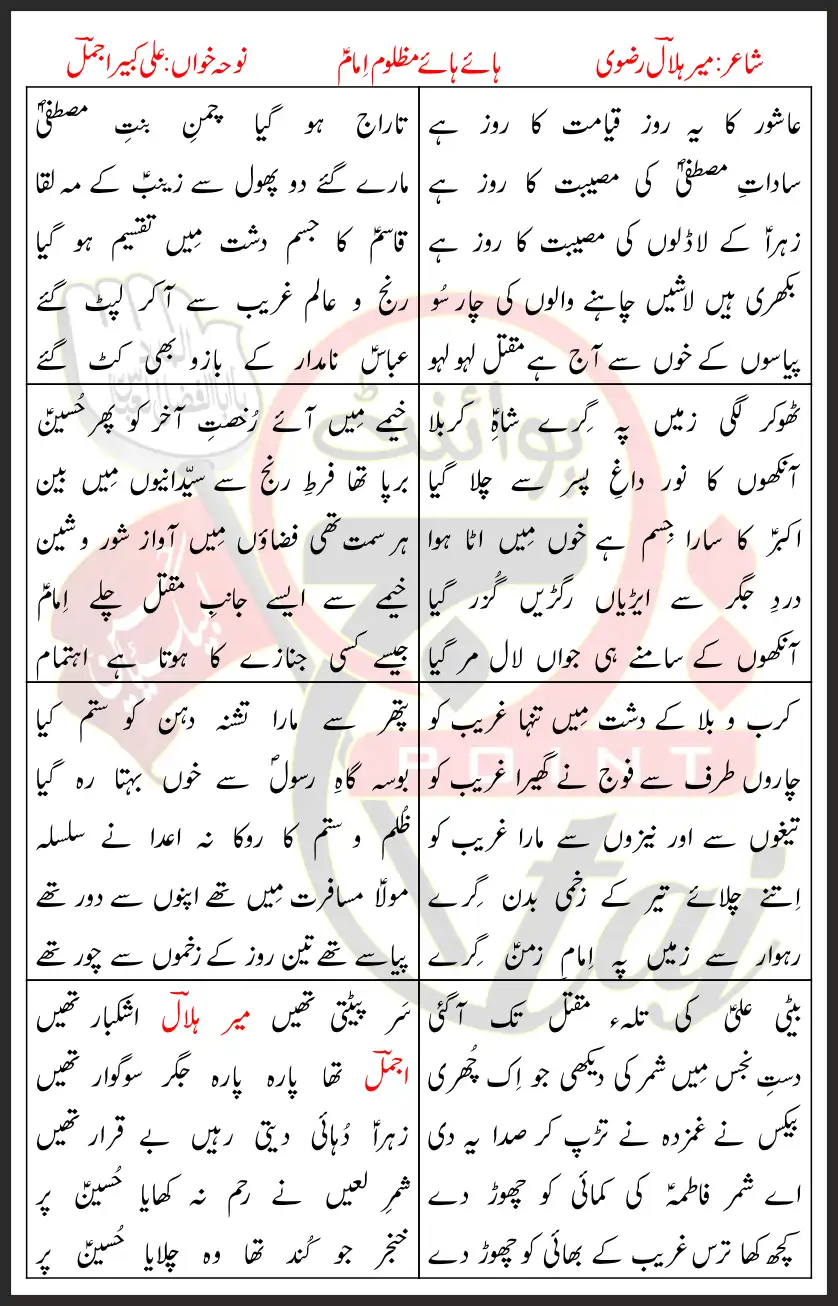 شاعر: میر ہلالؔ رضوی
ہائے ہائے مظلوم اِمامؑ
نوحہ خواں: علی کبیر اجملؔ
عاشور کا یہ روز قیامت کا روز ہے
ساداتِ مصطفیٰؐ کی مصیبت کا روز ہے
زہراؑ کے لاڈلوں کی مصیبت کا روز ہے
بکھری ہیں لاشیں چاہنے والوں کی چار سُو
پیاسوں کے خوں سے آج ہے مقتل لہو لہو
تاراج ہو گیا چمنِ بنتِ مصطفیٰؐ
مارے گئے دو پھول سے زینبؑ کے مہ لقا
قاسمؑ کا جسم دشت مِیں تقسیم ہو گیا
رنج و عالم غریب سے آ کر لپٹ گئے
عباسؑ نامدار کے بازو بھی کٹ گئے
ٹھوکر لگی زمیں پہ گِرے شاہِؑ کربلا
آنکھوں کا نور داغِ پسر سے چلا گیا
اکبرؑ کا سارا جِسم ہے خوں مِیں اٹا ہوا
دردِ جگر سے ایڑیاں رگڑیں گُزر گیا
آنکھوں کے سامنے ہی جواں لال مر گیا
خیمے مِیں آئے رُخصتِ آخر کو پھر حُسینؑ
برپا تھا فرطِ رنج سے سیّدانیوں مِیں بین
ہر سمت تھی فضاؤں مِیں آواز شور و شین
خیمے سے ایسے جانبِ مقتل چلے اِمامؑ
جیسے کسی جنازے کا ہوتا ہے اہتمام
کرب و بلا کے دشت مِیں تنہا غریب کو
چاروں طرف سے فوج نے گھیرا غریب کو
تیغوں سے اور نیزوں سے مارا غریب کو
اِتنے چلائے تیر کے زخمی بدن گِرے
رہوار سے زمیں پہ اِمامِ زمنؑ گِرے
پتھر سے مارا تشنہ دہن کو ستم کیا
بوسہ گاہِ رسولؐ سے خوں بہتا رہ گیا
ظُلم و ستم کا روکا نہ اعدا نے سلسلہ
مولاؑ مسافرت مِیں تھے اپنوں سے دور تھے
پیاسے تھے تین روز کے زخموں سے چور تھے
بیٹی علیؑ کی تلہء مقتل تک آ گئی
دستِ نجس مِیں شمر کی دیکھی جو اِک چُھری
بیکس نے غمزدہ نے تڑپ کر صدا یہ دی
اے شمر فاطمہؑ کی کمائی کو چھوڑ دے
کچھ کھا ترس غریب کے بھائی کو چھوڑ دے
سَر پیٹتی تھیں میر ہلالؔ اشکبار تھیں
اجملؔ تھا پارہ پارہ جگر سوگوار تھیں
زہراؑ دُہائی دیتی رہیں بے قرار تھیں
شمرِ لعیں نے رحم نہ کھایا حُسینؑ پر
خنجر جو کُند تھا وہ چلایا حُسینؑ پر
پوائنٹ
POINT
taj